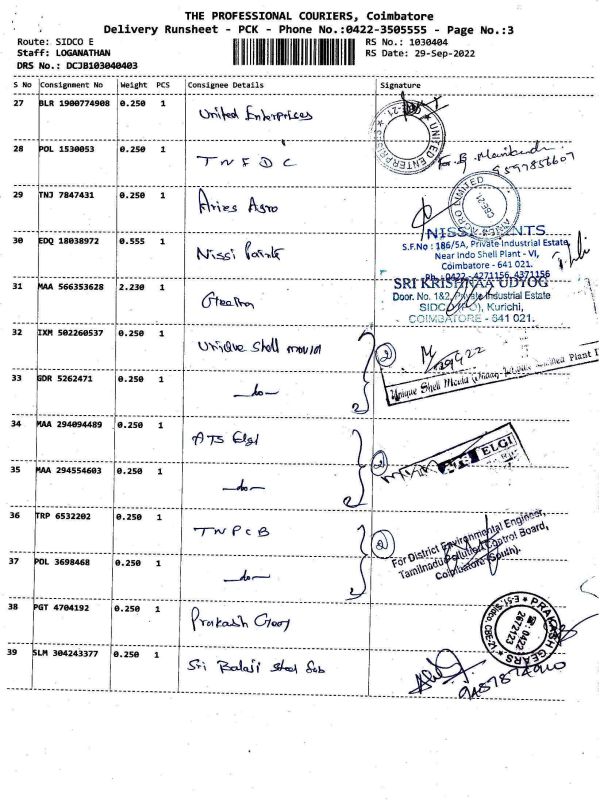 THE PROFESSIONAL COURIERS, Coimbatore
Delivery Runsheet - PCK - Phone No.:0422-3505555 - Page No.:3
Route: SIDCO E
RS No.: 1030404
Staff: LOGANATHAN
RS Date: 29-Sep-2022
DRS No.: DCJB103040403
S No Consignment No Weight PCS Consignee Details Signature
27 BLR 1900774908 0.250 1 United Enterprises
UNITED ENTERPRISES
28 POL 1530053 0.250 1 TNFDC
9597856607
29 TNJ 7847431 0.250 1 Aries Agro
LIMITED
CBE-21
30 EDQ 18038972 0.555 1 Nissi Paints
S.F.No : 186/5A, Private Industrial Estate,
Near Indo Shell Plant - VI,
Coimbatore - 641 021.
Ph : 0422 - 4271156, 4371156
31 MAA 566353628 2.230 1
SRI KRISHNAA UDYOG
Door. No. 1&2, Private Industrial Estate
Kurichi,
COIMBATORE - 641 021.
32 IXM 502260537 0.250 1 Unique Shell mould
2
33 GDR 5262471 0.250 1 -do-
2
Unique Shell Mould
34 MAA 294094489 0.250 1 ATS Elgi
2
ATS ELGI
35 MAA 294554603 0.250 1 -do-
2
36 TRP 6532202 0.250 1 TNPCB
2
For District Environmental Engineer,
Tamilnadu Pollution Control Board,
Coimbatore (South).
37 POL 3698468 0.250 1 -do-
2
38 PGT 4704192 0.250 1 Prakash Gears
PRAKASH GEARS
☎: 0422
2672123
39 SLM 304243377 0.250 1 Sri Balaji Steel